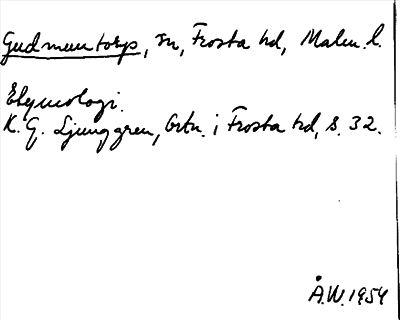 Gudmuntorp, sn, Frosta hd, Malm. l.
Etymologi.
K. G. Ljunggren, Ortn. i Frosta hd, s. 32.
Å.W. 1954